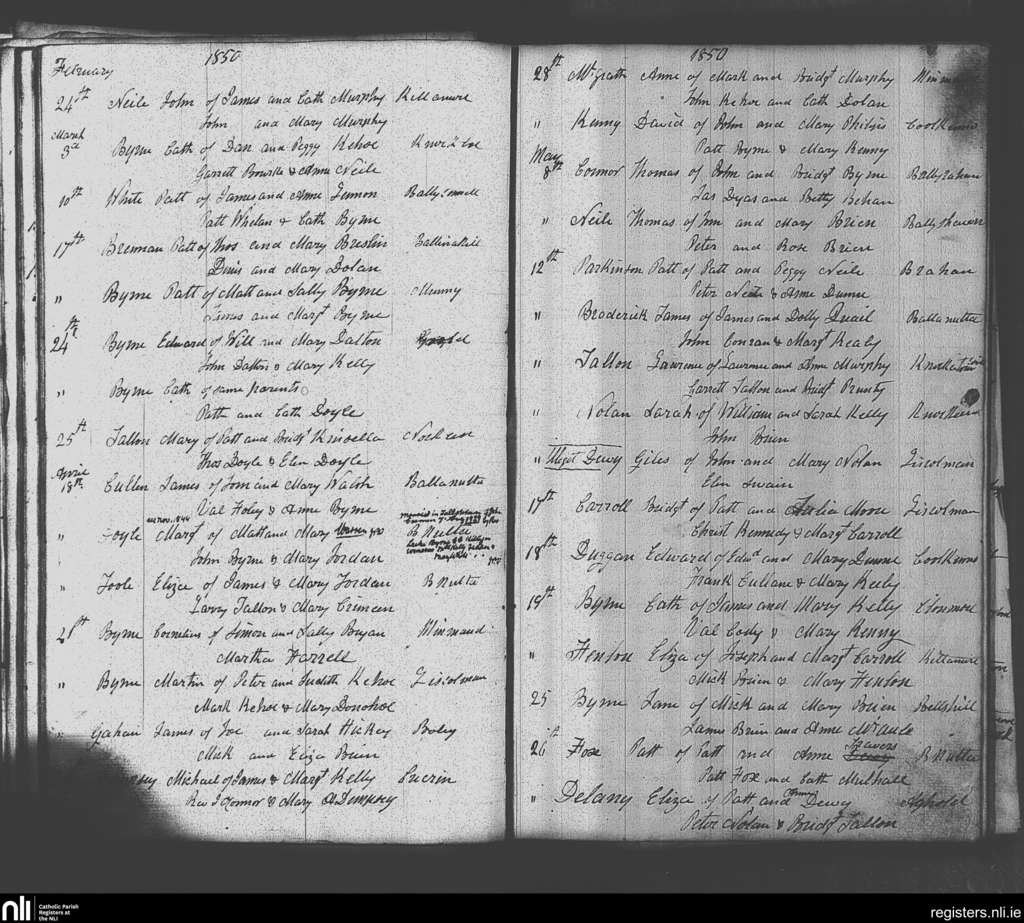 1850
February
24th Neile John of James and Cath Murphy Killamure
John and Mary Murphy
March
3d Byrne Cath of Dan and Peggy Kehoe
Garrett Bourke & Anne Neile
10th White Patt of James and Anne Lennon
Patt Whelan & Cath Byrne
17th Brennan Patt of Thos and Mary Breslin Ballinakill
Denis and Mary Dolan
" Byrne Patt of Matt and Sally Byrne Munny
James and Margt Byrne
24th Byrne Edward of Will and Mary Dalton
John Dalton & Mary Kelly
" Byrne Cath of same parents
Patt and Cath Doyle
25th Tallon Mary of Patt and Bridgt Kinsella
Thos Doyle & Elen Doyle
April
18th Cullen James of Tom and Mary Walsh Ballanultu
Val Foley & Anne Byrne
" Doyle Margt of Matt and Mary B Nultu
John Byrne & Mary Jordan
" Toole Eliza of James & Mary Jordan B Nultu
Larry Tallon & Mary
21st Byrne Cornelius of Simon and Sally Bryan Minmaud
Martha Farrell
" Byrne Martin of Peter and Judith Kehoe Liscolman
Mark Kehoe & Mary Donohoe
Gahan James of Joe and Sarah Hickey Boley
Mick and Eliza Brien
Michael of James & Margt Kelly
Rev J OConnor & Mary A Dempsey
1850
28th McGrath Anne of Mark and Bridgt Murphy
John Kehoe and Cath Dolan
" Kenny David of John and Mary
Patt Byrne & Mary Kenny
May
8th Connor Thomas of John and Bridgt Byrne
Jas Dyas and Betty Behan
" Neile Thomas of Jno and Mary Brien
Peter and Rose Brien
12th Parkinson Patt of Patt and Peggy Neile
Peter Neile & Anne Dunne
" Broderick James of James and Dolly Quail Ballanultu
John Conran & Margt Kealy
" Tallon Lawrence of Lawrence and Anne Murphy
Garrett Tallon and Bridgt Prunty
" Nolan Sarah of William and Sarah Kelly
John Brien
" Illegt Dewy Giles of John and Mary Nolan Liscolman
Elen Swain
17th Carroll Bridgt of Patt and Julia Moore Liscolman
Christ Kennedy & Margt Carroll
18th Duggan Edward of Edwd and Mary Dunne Coolkenno
Frank Cullane & Mary Keely
19th Byrne Cath of James and Mary Kelly Clonmore
Val Cody & Mary Kenny
" Fenton Eliza of Joseph and Margt Carroll Killamure
Mick Brien & Mary Henton
25 Byrne Jane of Mick and Mary Brien
James Brien and Anne McAule
26th Fox Patt of Patt and Anne B Nultu
Patt Fox and Cath Mulhall
" Delany Eliza of Patt and Dewy Aghold
Peter Nolan & Bridgt Tallon
nli Catholic Parish
Registers at
the NLI
registers.nli.ie